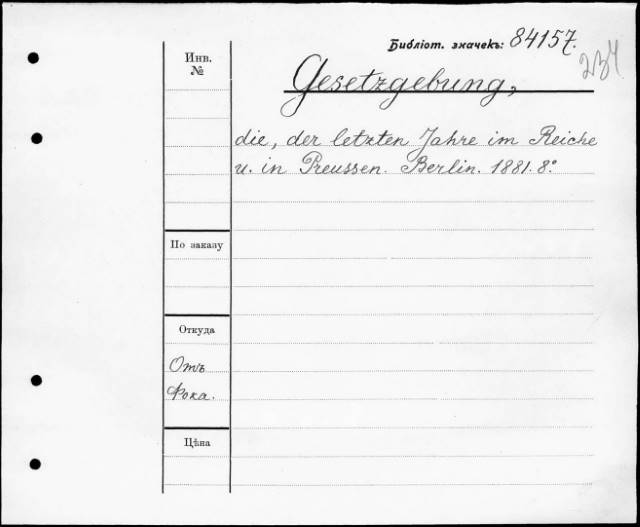 Библіот. значекъ: 84157.
234
Инв.
№
Gesetzgebung,
die, der letzten Jahre im Reiche
u. in Preussen. Berlin. 1881. 8°.
По заказу
Откуда
Отъ
Фока.
Цѣна